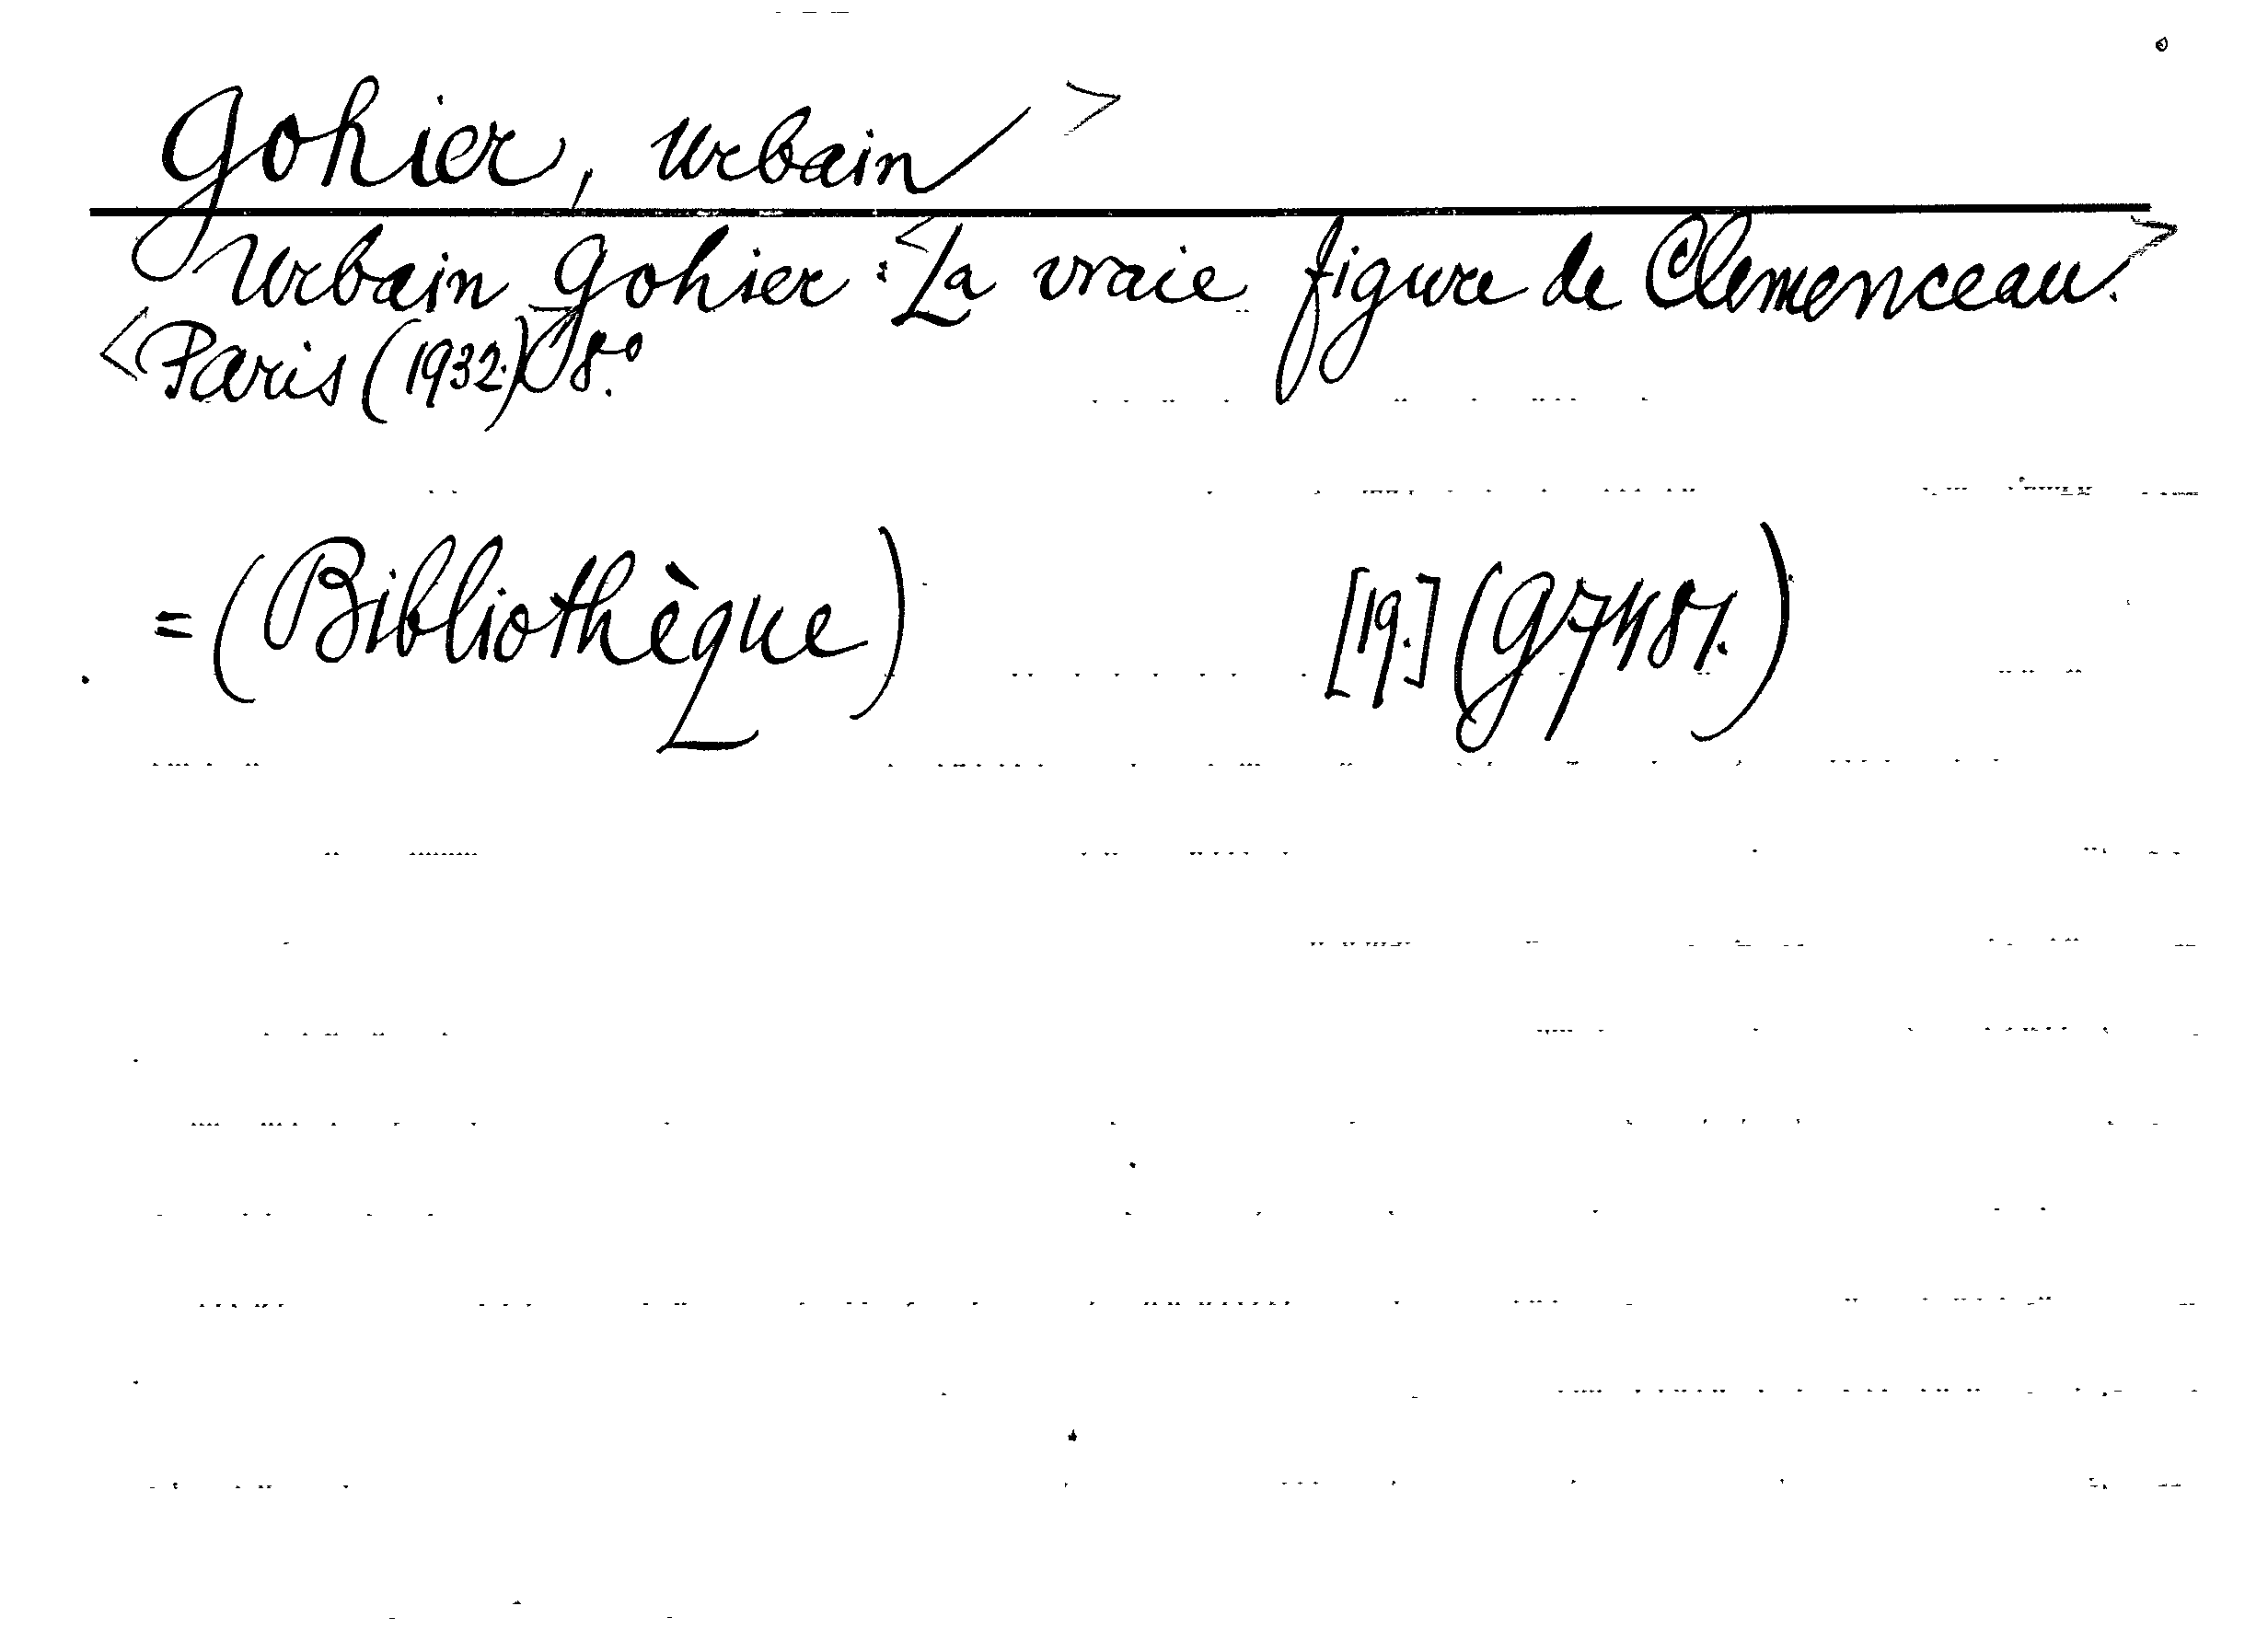 Gohier, Urbain >
Urbain Gohier: <La vraie figure de Clemenceau.>
<Paris (1932.) 8.°
=(Bibliothèque) [19.] (G7481.)